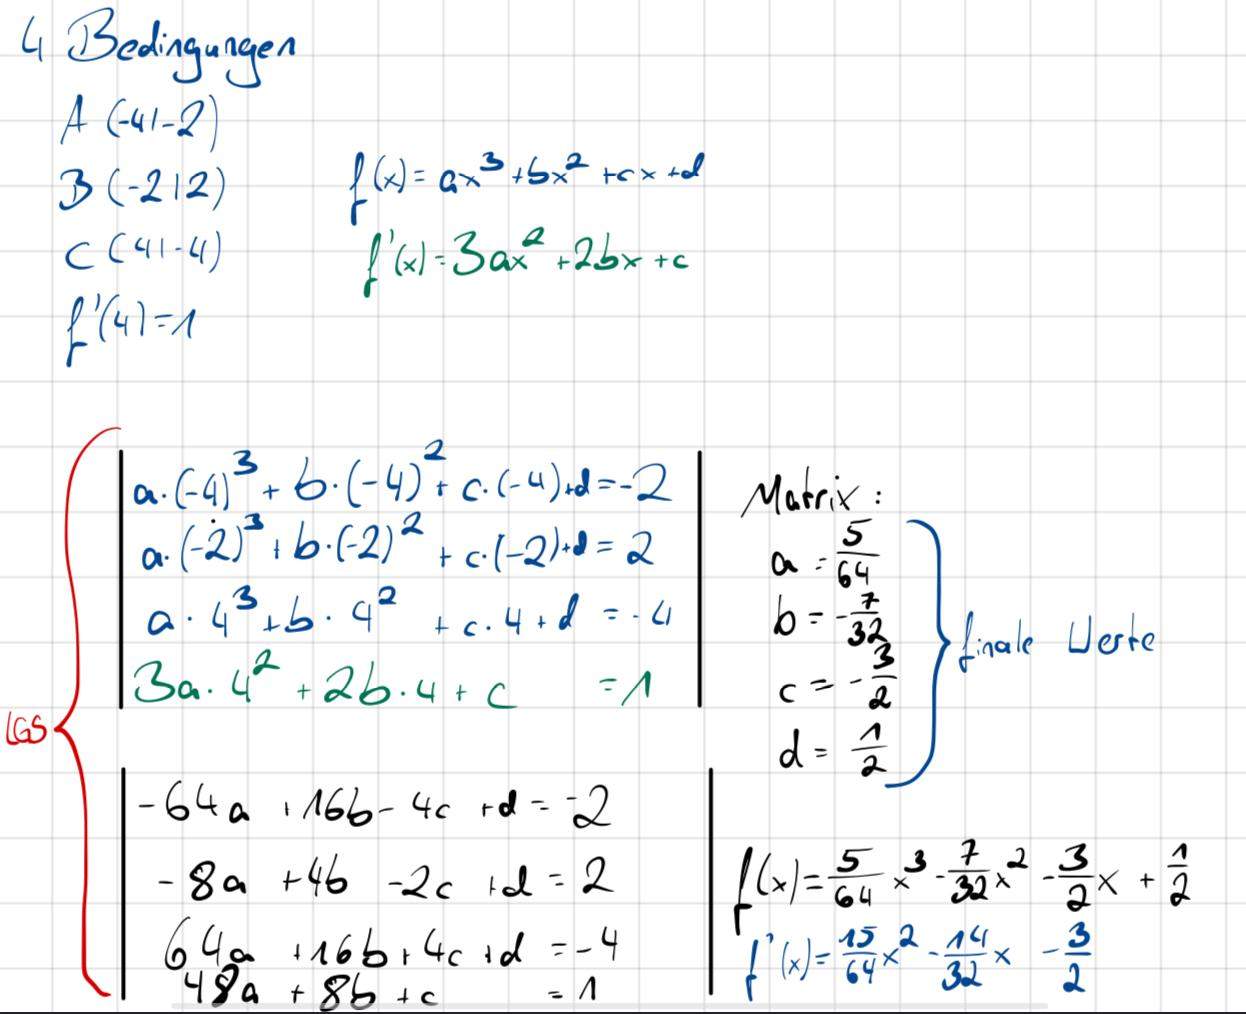 4 Bedingungen
A (-4|-2)
B (-2|2)
f(x) = ax³ + bx² + cx + d
C (4|-4)
f'(x) = 3ax² + 2bx + c
f'(4) = 1
LGS
a·(-4)³ + b·(-4)² + c·(-4) + d = -2
a·(-2)³ + b·(-2)² + c·(-2) + d = 2
a·4³ + b·4² + c·4 + d = -4
3a·4² + 2b·4 + c = 1
Matrix:
a = 5/64
b = -7/32
c = -3/2
d = 1/2
finale Werte
-64a + 16b - 4c + d = -2
-8a + 4b - 2c + d = 2
64a + 16b + 4c + d = -4
48a + 8b + c = 1
f(x) = 5/64 x³ - 7/32 x² - 3/2 x + 1/2
f'(x) = 15/64 x² - 14/32 x - 3/2